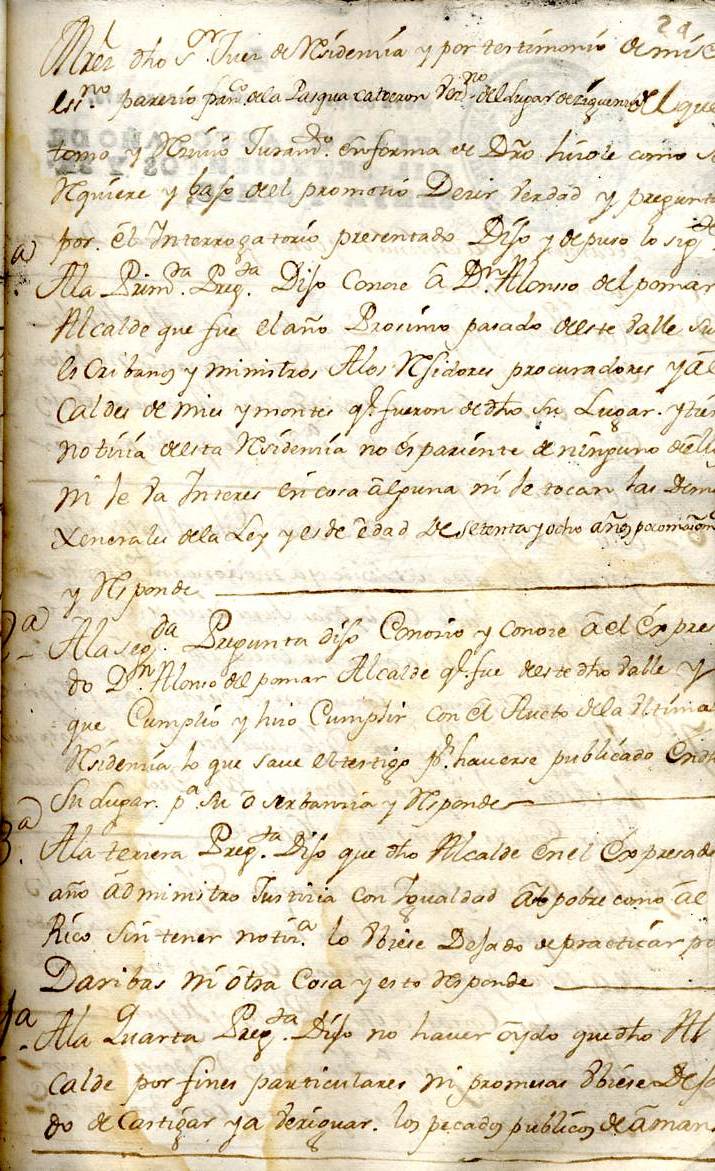 24
Mrd dho Sr. Juez de Residenzia y por testimonio de mi el
esno. parezio franco. de la Pasqua calderon vezno. del lugar de ziguenza del que
tomo y Rezivio Juramdo. en forma de Dro hizole como se
Requiere y bajo del promotio Dezir verdad y pregunta
por el Interrogatorio presentado Dijo y depuso lo sigte
1a) Ala Primda. Pregda. Dijo Conoze â Dn Alonso del pomar
Alcalde que fue el año Prosimo pasado deste valle su
esCribanos y ministros Alos Rejidores procuradores y al
Caldes de mies y montes qe. fueron de dho su Lugar. y tiene
notizia desta Residenzia no es pariente de ninguno dellos
ni le va Interes en cosa alguna ni le tocan las Demas
Xenerales dela Ley y es de êdad de setenta y ocho años
y Responde
2a) Ala segda. Pregunta dijo Conozio y conoze â el êxpresa
do Dn. Alonso del pomar Alcalde qe. fue deste dho valle y
que Cumplio y hizo Cumplir con el Aucto dela Ultima
Residenzia lo que save el testigo pr. haverse publicado en dho
Su Lugar. pa. su observanzia y Responde
3a) Ala terzera Pregta. Dijo que dho Alcalde en el êxpresado
año administro Justizia con Igualdad al pobre como al
Rico sin tener notiza. lo Ubiese Dejado de practicar por
Daribas ni ôtra Cosa y esto Responde
4a Ala Quarta Pregta. Dijo no haver ôydo que dho Al
calde por fines particulares ni promesas Ubiese Deja
do de Castigar y a veriguar. los pecados publicos de aman